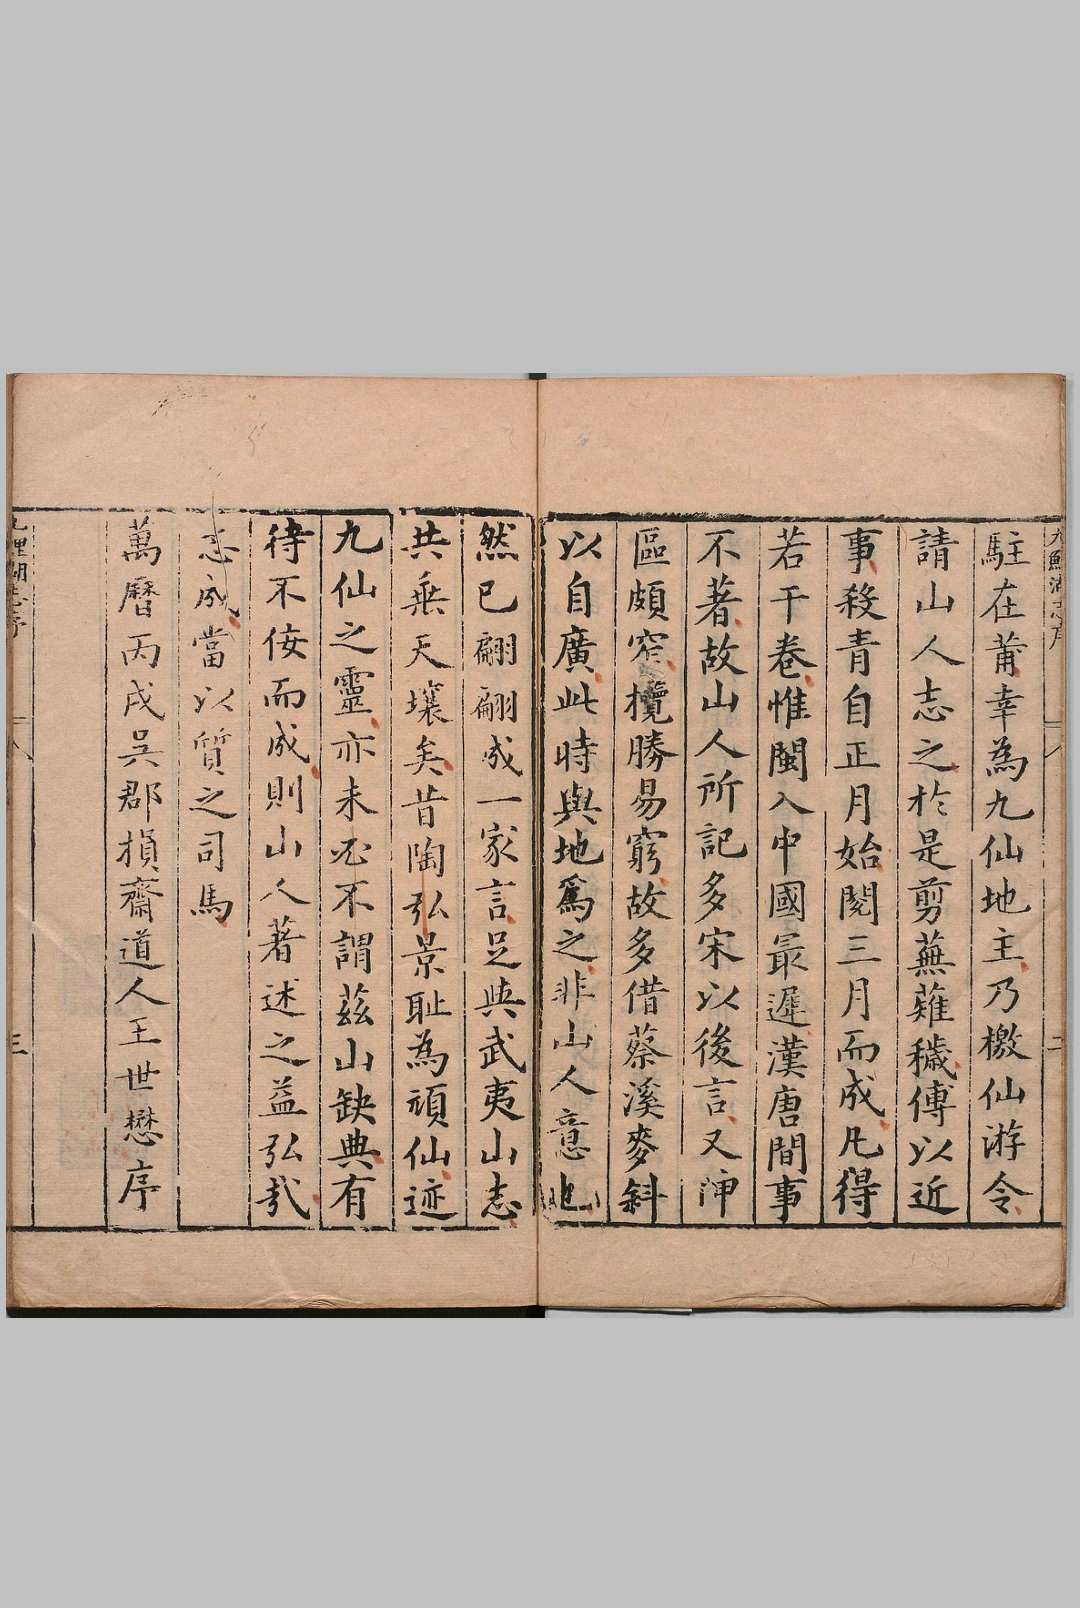 駐在莆幸為九仙地主乃檄仙游令
請山人志之於是剪蕪薙穢傅以近
事殺青自正月始閱三月而成凡得
若干卷惟閩入中國最遲漢唐間事
不著故山人所記多宋以後言又陣
區頗窄欖勝易窮故多借蔡溪麥斜
以自廣此時與地爲之非山人意也
然已翩翩成一家言足與武夷山志
共垂天壤矣昔陶弘景耻為頑仙迹
九仙之靈亦未必不謂茲山缺典有
待不佞而成則山人著述之益弘哉
志成當以質之司馬
萬曆丙戌吳郡損齋道人王世懋序
三